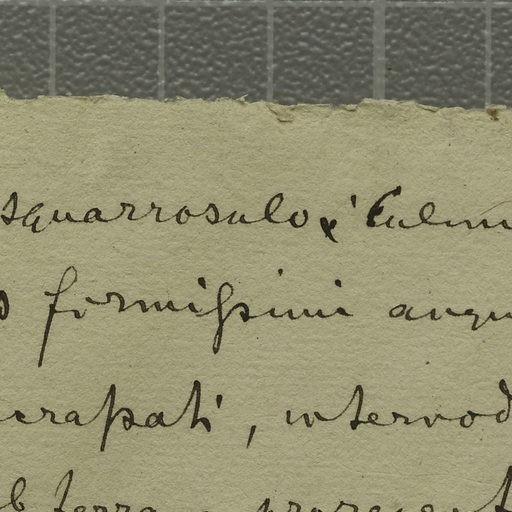 squarrosulo, Culm
firmissimi angu
crassati, internod
b terra